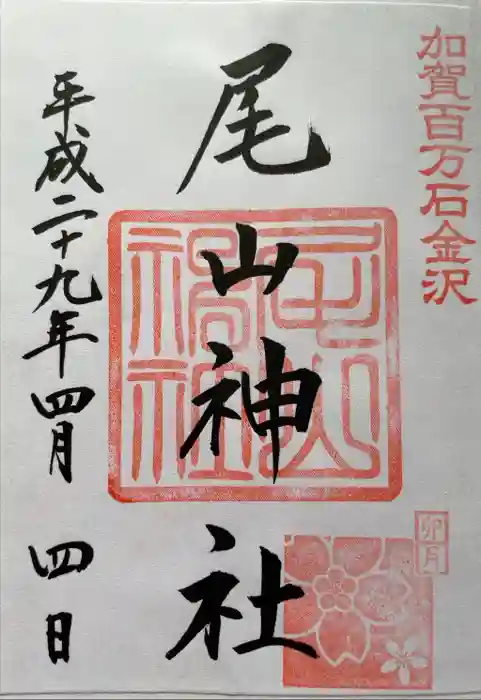 加賀百万石金沢
尾山神社
卯月
平成二十九年四月四日